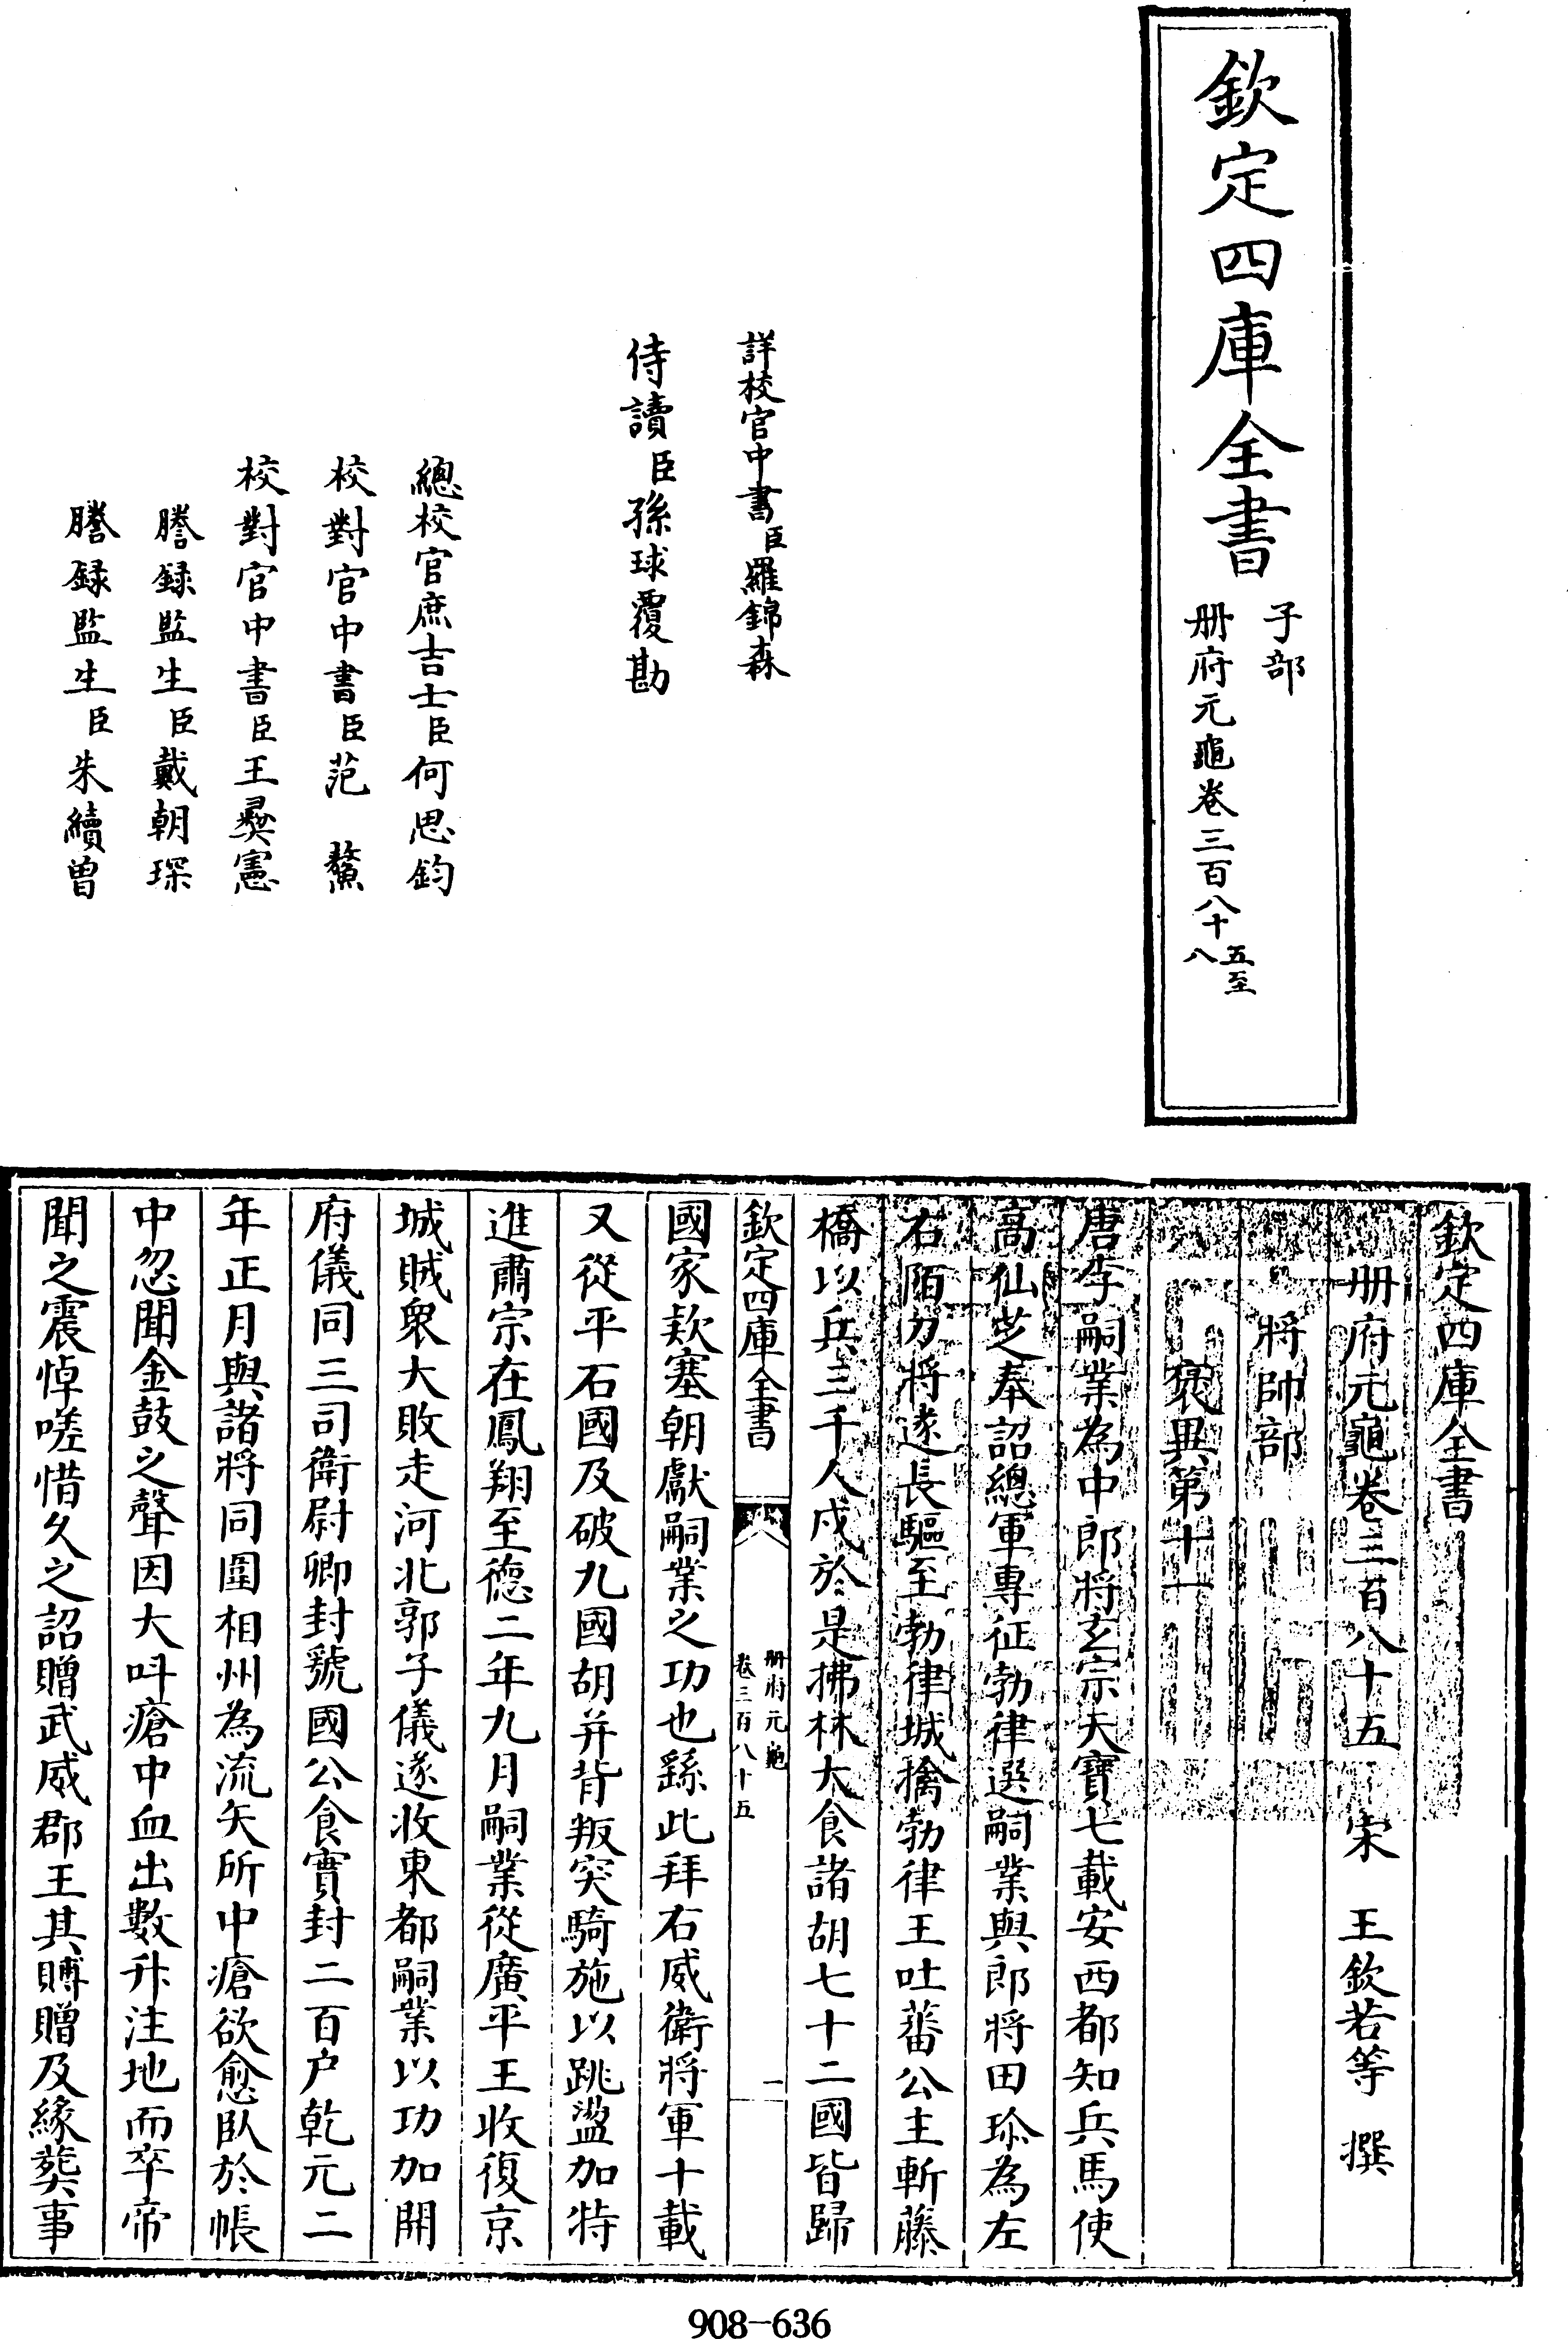 欽定四庫全書
子部
册府元龜卷三百八十五至八
詳校官中書臣羅錦森
侍讀臣孫球覆勘
總校官庶吉士臣何思鈞
校對官中書臣范鏊
校對官中書臣王彛憲
謄録監生臣戴朝琛
謄録監生臣朱續曾
欽定四庫全書
册府元龜卷三百八十五 宋 王欽若等 撰
將帥部
褒異第十一
唐李嗣業為中郎將玄宗天寶七載安西都知兵馬使
高仙芝奉詔總軍專征勃律選嗣業與郎將田珎為左
右陌刀將遂長驅至勃律城擒勃律王吐蕃公主斬藤
橋以兵三千人戍於是拂林大食諸胡七十二國皆歸
欽定四庫全書
册府元龜
卷三百八十五
一
國家欵塞朝獻嗣業之功也繇此拜右威衛將軍十載
又從平石國及破九國胡并背叛突騎施以跳盪加特
進肅宗在鳳翔至德二年九月嗣業從廣平王收復京
城賊衆大敗走河北郭子儀遂收東都嗣業以功加開
府儀同三司衛尉卿封虢國公食實封二百户乾元二
年正月與諸將同圍相州為流矢所中瘡欲愈臥於帳
中忽聞金鼓之聲因大呌瘡中血出數升注地而卒帝
聞之震悼嗟惜久之詔贈武威郡王其賻贈及緣葬事
908-636